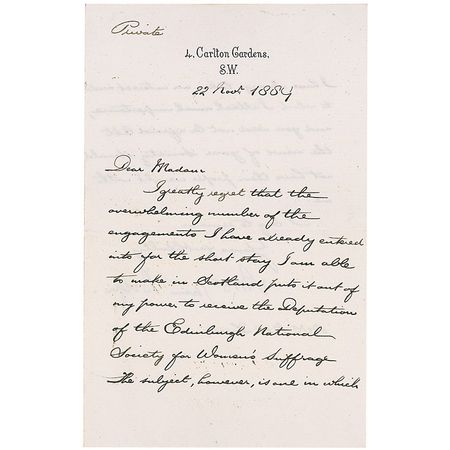 Private
4, Carlton Gardens,
S.W.
22 Novr. 1884
Dear Madam
I greatly regret that the
overwhelming number of the
engagements I have already entered
into for the short stay I am able
to make in Scotland puts it out of
my power to receive the Deputation
of the Edinburgh National
Society for Women's Suffrage
The subject, however, is one in which